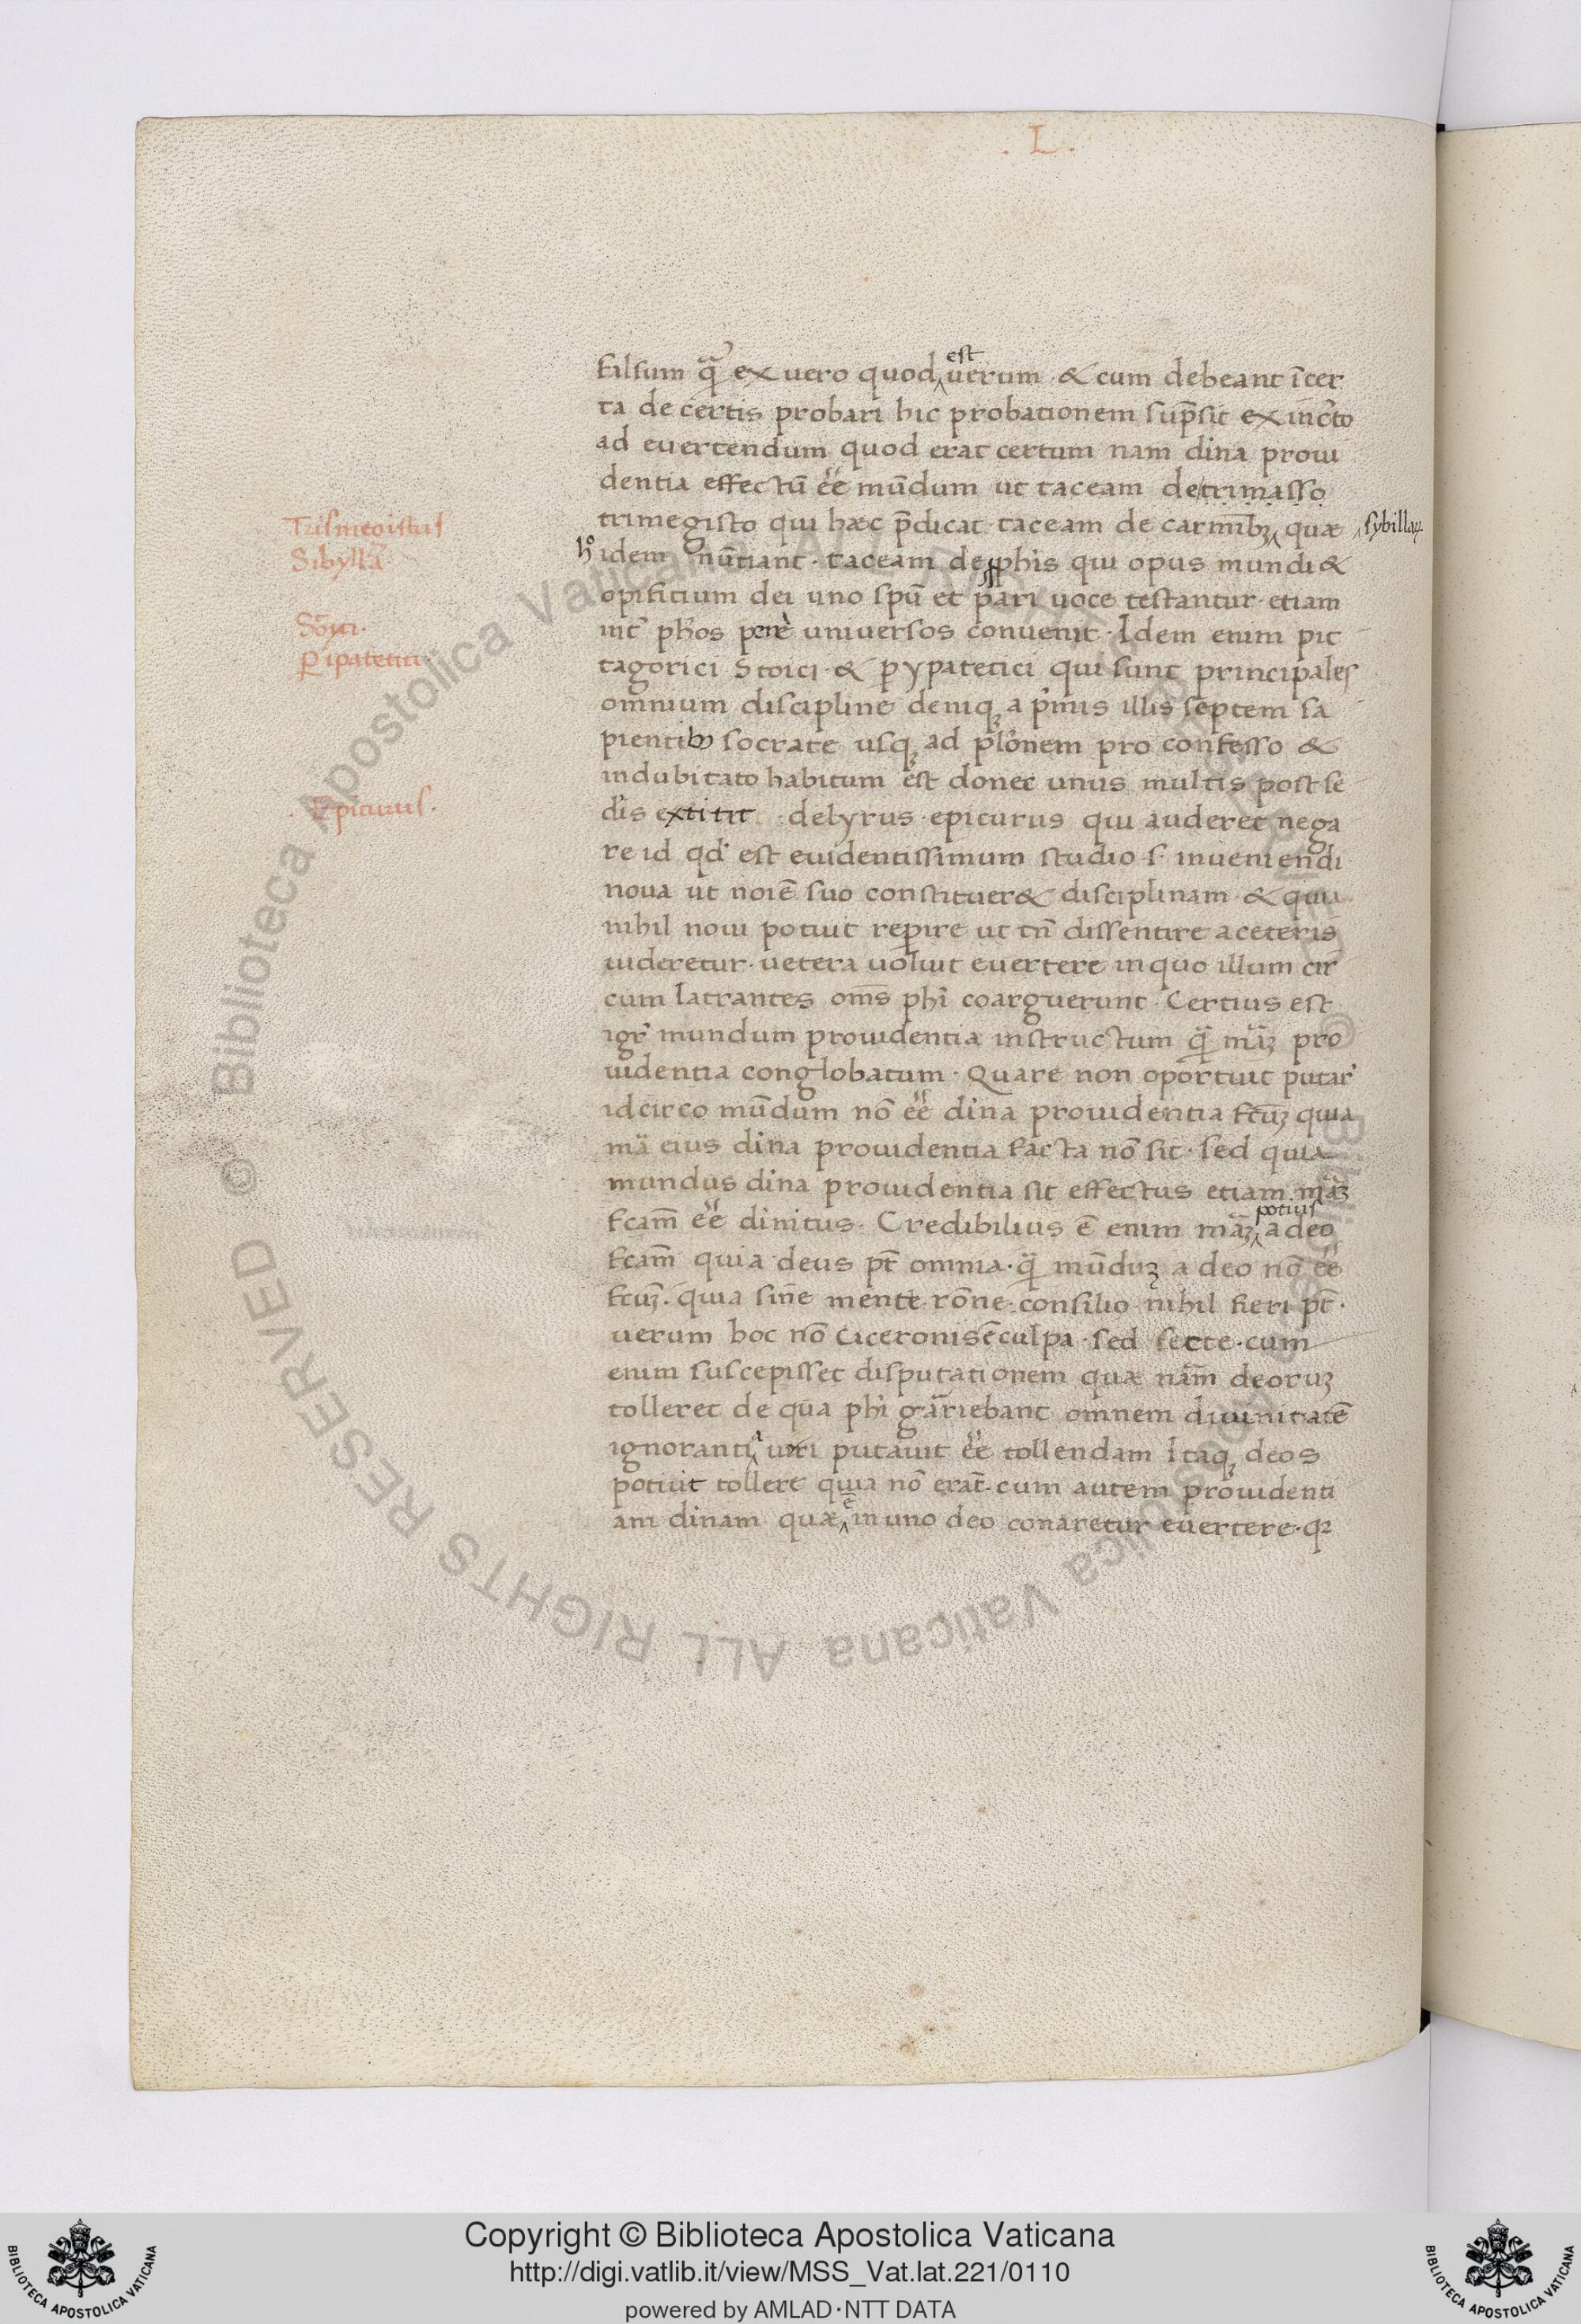 . L .
falsum q̃ ex uero quod est uerum · & cum debeant īcer
ta de certis probari hic probationem sup̄sit ex incerto
ad euertendum quod erat certum nam dina proui
dentia effectū ēē mūdum ut taceam de trimasso
trimegisto qui hæc p̄dicat taceam de carminibꝫ quæ sybillaꝝ
Trismegistus
Sibylla
idem nūtiant · taceam de ꝓphis qui opus mundi &
opificium dei uno spū et pari uoce testantur · etiam
int̃ phos pene uniuersos conuenit · Idem enim pit
Stoyci.
Peripatetici.
tagorici Stoici · & pypatetici qui sunt principales
omnium discipline deniqꝫ a p̃mis illis septem sa
pientibꝫ socrate usqꝫ ad platonem pro confesso &
indubitato habitum est donec unus multis post se
. Epicurus.
clis extitit · delyrus · epicurus qui auderet nega
re id qd̃ est euidentissimum studio · s · inueniendi
noua ut noīe suo constituer& disciplinam · & quia
nihil noui potuit repire ut tn̄ dissentire a ceteris
uideretur · uetera uoluit euertere in quo illum cir
cum latrantes om̄s phi coarguerunt · Certius est
igr̃ mundum prouidentia instructum q̃ mãꝫ pro
uidentia conglobatum · Quare non oportuit putar̃
idcirco mūdum nō ēē dina prouidentia fcūꝫ quia
mã eius dina prouidentia facta nō sit · sed quia
mundus dina prouidentia sit effectus etiam mãꝫ
fcam̄ ēē dinitus · Credibilius ē enim mãꝫ potius a deo
fcam̄ quia deus pt̄ omnia · q̃ mūduꝫ a deo nō ēē
fcūꝫ · quia sine mente rōne consilio nihil fieri pt̄ ·
uerum hoc nō Ciceronis ē culpa · sed secte · cum
enim suscepisset disputationem quæ nam̄ deoruꝫ
tolleret de qua phi garriebant omnem diuinitatē
ignorantia ueri putauit ēē tollendam Itaqꝫ deos
potuit tollere quia nō erat̄ · cum autem prouidenti
am dinam quæ ē in uno deo conaretur euertere · qꝛ